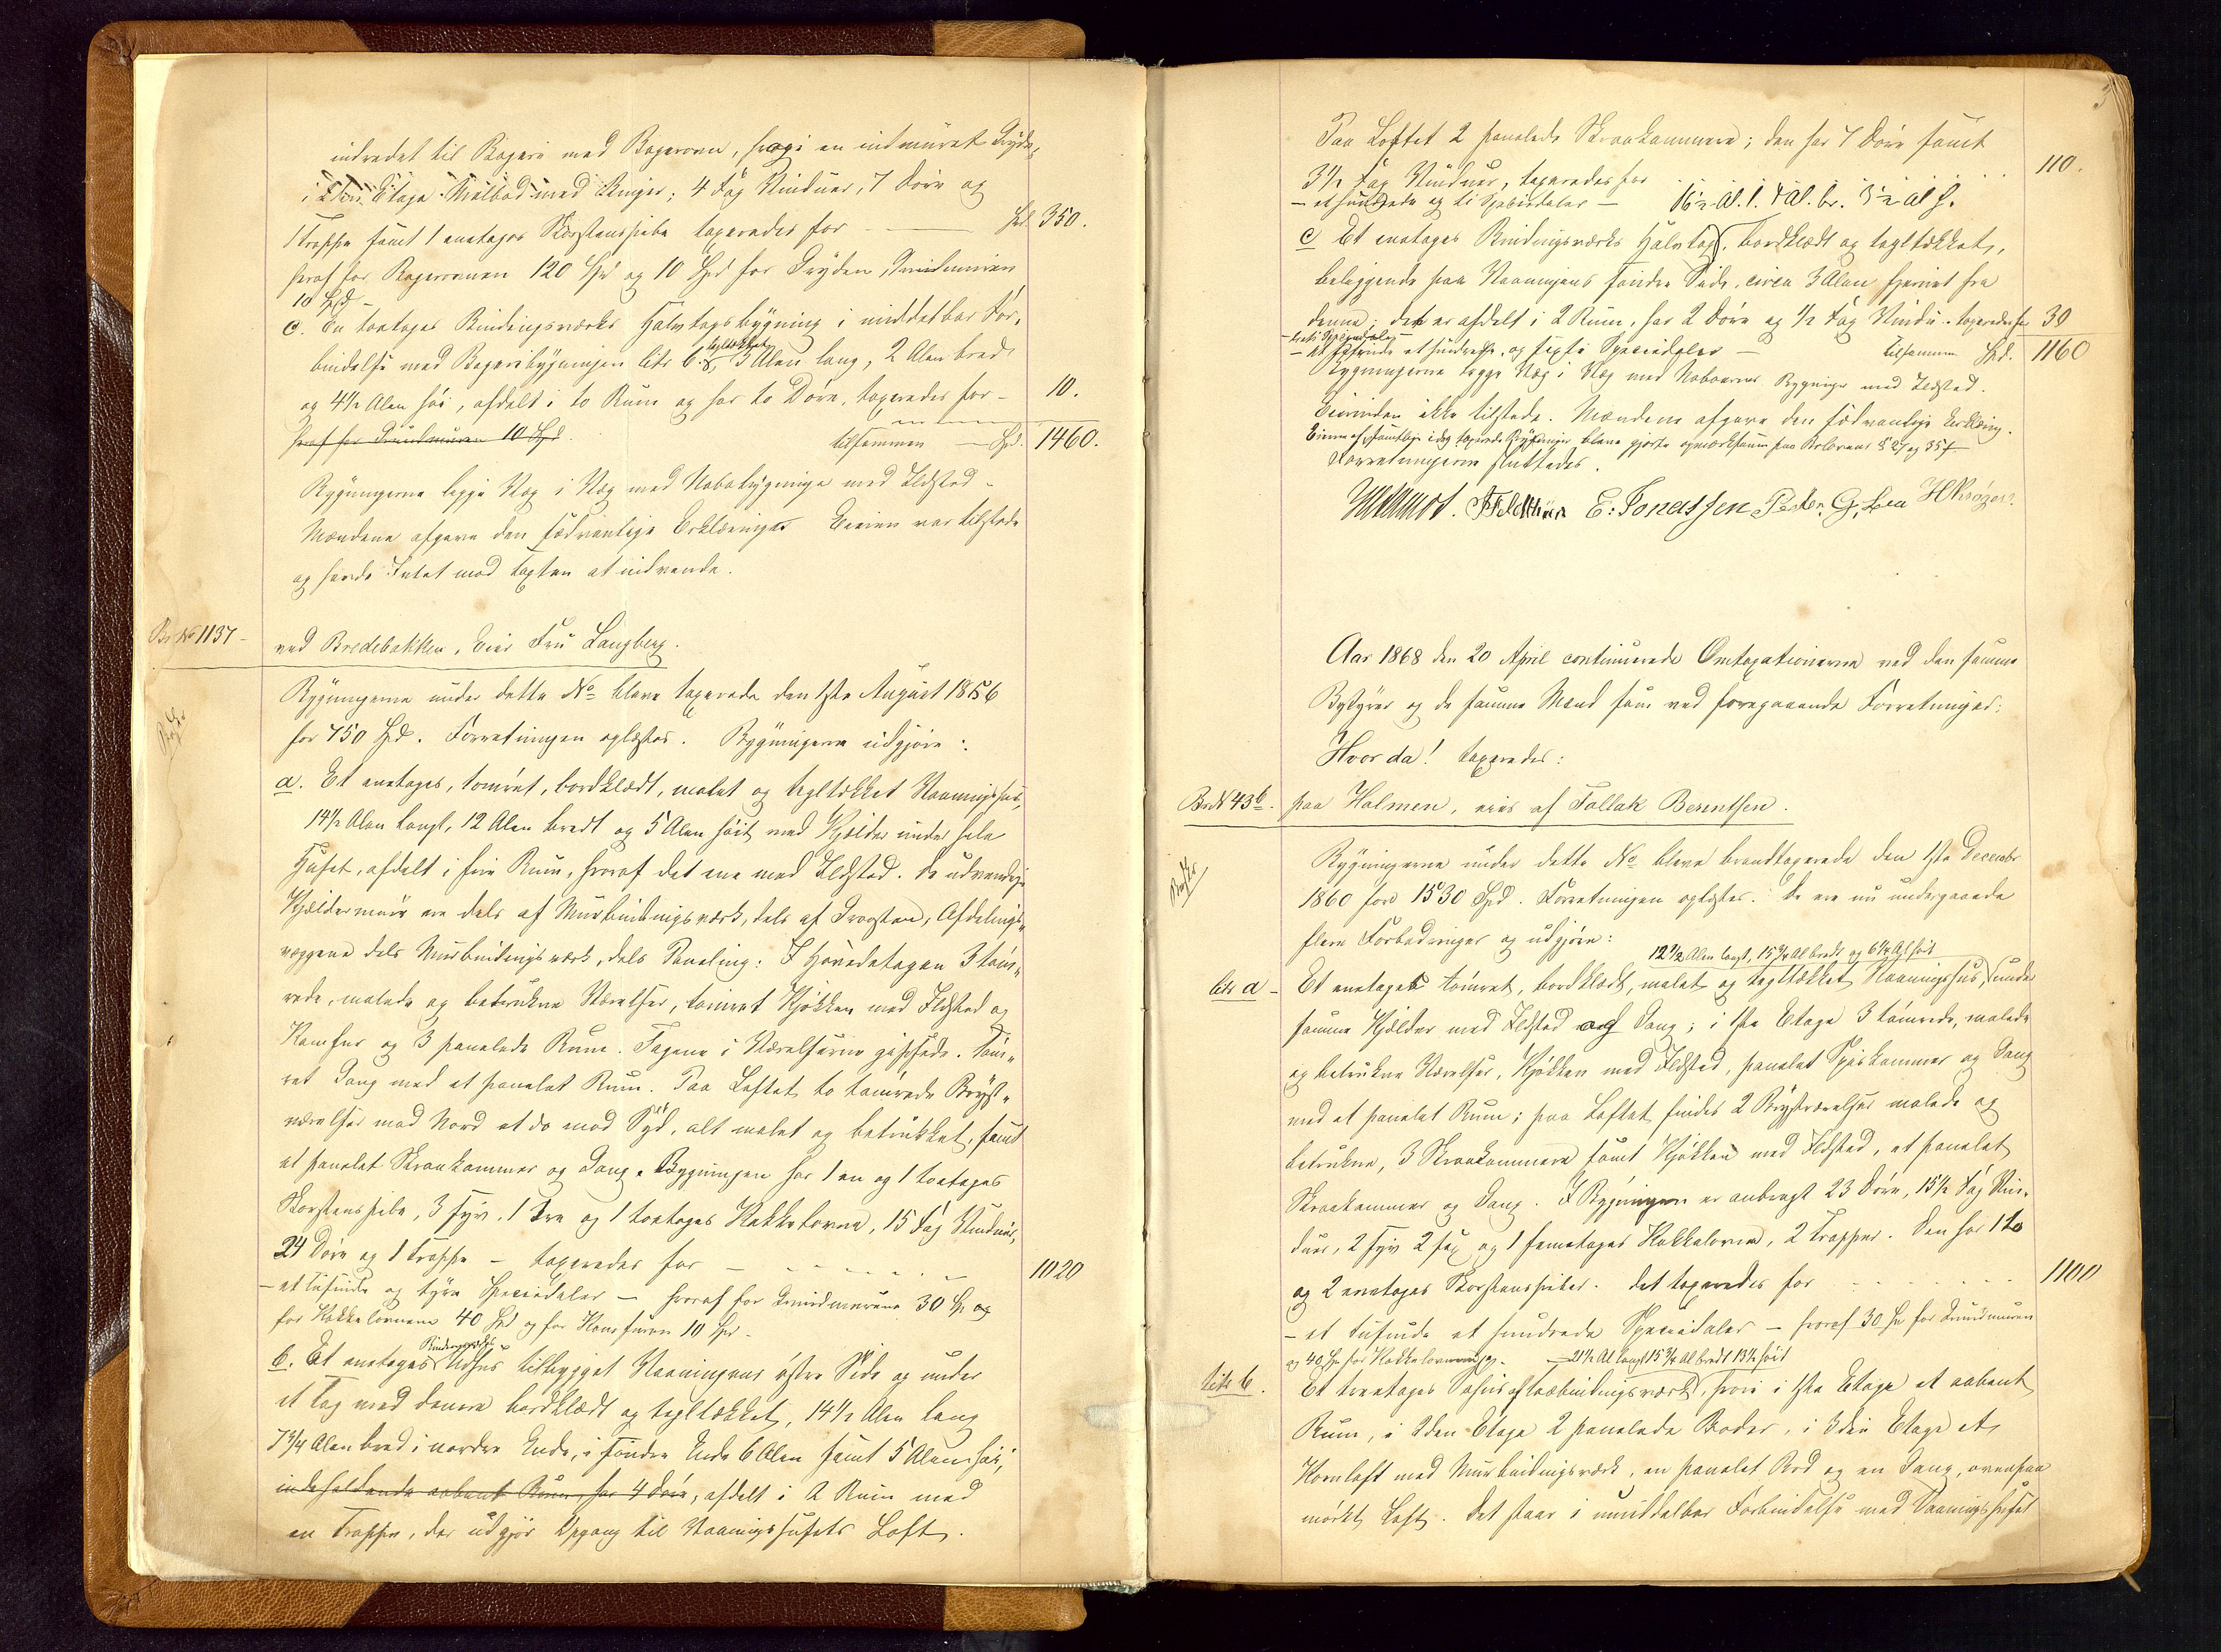 indredet til Bageri med Bagerovn, hvori en indmuret Gryde,
i 2den Etage Melbod med Binger; 4 Fag Vinduer, 7 Döre og
1 Trappe samt 1 enetages Skorstenspibe taxeredes for — Spd. 350.
heraf for Bagerovnen 120 Spd og 10 Spd for Gryden, Grundmuren
10 Spd –
c. En toetages Bindingsværks Halvtagsbygning i umiddelbar For-
bindelse med Bageribygningen litr b. tegltækket 3 Alen lang, 2 Alen bred
og 4½ Alen höi, afdelt i to Rum og har to Döre, taxeredes for – 10.
heraf for Grundmuren 10 Spd.
tilsammen — Spd. 1460.
Bygningerne ligge Væg i Væg med Nabobygninger med Ildsted –
Mændene afgave den sædvanlige Erklæringer Eieren var tilstede
og havde Intet mod Taxten at indvende.
Br No 1137 –
ved Bredebakken, Eier Fru Langberg.
Bygningerne under dette No bleve taxerede den 1ste August 1856
for 750 Spd. Forretningen oplæstes. Bygningerne udgjöre:
a. Et enetages, tömret, bordklædt, malet og tegltækket Vaaningshus,
14½ Alen langt, 12 Alen bredt og 5 Alen höit med Kjelder under hele
Huset, afdelt i fire Rum, hvoraf det ene med Ildsted. De udvendige
Kjeldermure ere dels af Murbindingsværk, dels af Graasten, Afdelings-
væggene dels Murbindingsværk, dels Paneling: I Hovedetagen 3 töm-
rede, malede og betrukne Værelser, tömret Kjökken med Ildsted og
Komfur og 3 panelede Rum. Tagene i Værelserne gipsede. Töm-
ret Gang med et panelet Rum. Paa Loftet to tömrede Bryst-
værelser mod Nord et do mod Syd, alt malet og betrukket, samt
et panelet Skraakammer og Gang. Bygningen har 1 en og 1 toetages
Skorstenspibe, 3 fyr, 1 tre og 1 toetages Kakkelovne, 15 Fag Vinduer,
24 Döre og 1 Trappe – taxeredes for – 1020
– et tusinde og tyve Speciedaler – hvoraf for Grundmurene 30 Sp og
for Kakkelovnene 40 Spd og for Komfuren 10 Spd –
b. Et enetages Bindingsværks Udhus tilbygget Vaaningens östre Side og under
et Tag med denne bordklædt og tegltækket, 14½ Alen lang
7¾ Alen bred i nordre Ende, i söndre Ende 6 Alen samt 5 Alen höi,
indeholdende aabent Rum, har 4 Döre, afdelt i 2 Rum med
en Trappe, der udgjör Opgang til Vaaningshusets Loft.
3
Paa Loftet 2 panelede Skraakammere; den har 7 Döre samt
3½ Fag Vinduer, taxeredes for 110.
– et hundrede og ti Speciedaler – 16½ Al. l. 4 Al. br. 3½ Al h.
c Et enetages Bindingsværks Halvtag, bordklædt og tegltækket,
beliggende paa Vaaningens söndre Side, circa 3 Alen fjernet fra
denne; det er afdelt i 2 Rum, har 2 Döre og ½ Fag Vindu. taxeredes for 30
– treti Speciedaler –
– et tusinde et hundrede og sexti Speciedaler – tilsammen Spd. 1160
Bygningerne ligge Væg i Væg med Naboernes Bygninger med Ildsted.
Eierinden ikke tilstede. Mændene afgave den sædvanlige Erklæring.
Eierne af samtlige idag taxerede Bygninger bleve gjorte opmærksomme paa Brlovens § 27 og 35 f
Forretningerne sluttedes.
E. Jonassen Peder G. Lea H Kröger
Aar 1868 den 20 April continuerede Omtaxationerne ved den samme
Byskriver og de samme Mænd som ved foregaaende Forretninger:
Hvor da! taxeredes:
Br N 43b. paa Holmen, eies af Tollak Berentsen.
Bygningerne under dette No bleve brandtaxerede den 1ste Decembr
1860 for 1530 Spd. Forretningen oplæstes. De ere nu undergaaede
flere Forbedringer og udgjöre:
12½ Alen langt, 15¾ Al bredt og 6¼ Al höit
litr a – Et enetages tömret, bordklædt, malet og tegltækket Vaaningshus, under
samme Kjelder med Ildsted og Gang; i 1ste Etage 3 tömrede, malede
og betrukne Værelser, Kjökken med Ildsted, panelet Spiskammer og Gang
med et panelet Rum; paa Loftet findes 2 Brystværelser malede og
betrukne, 3 Skraakammere samt Kjökken med Ildsted, et panelet
Skraakammer og Gang. I Bygningen er anbragt 23 Döre, 15½ Fag Vin-
duer, 2 fyr 2 sex og 1 femetages Kakkelovne, 2 Trapper. Den har 1 to
og 2 enetages Skorstenspiber. Det taxeredes for 1100
– et tusinde et hundrede Speciedaler – hvoraf 30 Sp for Grundmuren
og 40 Sp for Kakkelovnene. – 21½ Al langt 15¾ Al bredt 13½ höit
Litr b. Et treetages Söhus af Træbindingsværk, hvori i 1ste Etage et aabent
Rum, i 2den Etage 2 panelede Boder, i 3die Etage et
Kornloft med Murbindingsværk, en panelet Bod og en Gang, ovenpaa
mörkt Loft. Det staar i umiddelbar Forbindelse med Vaaningshuset